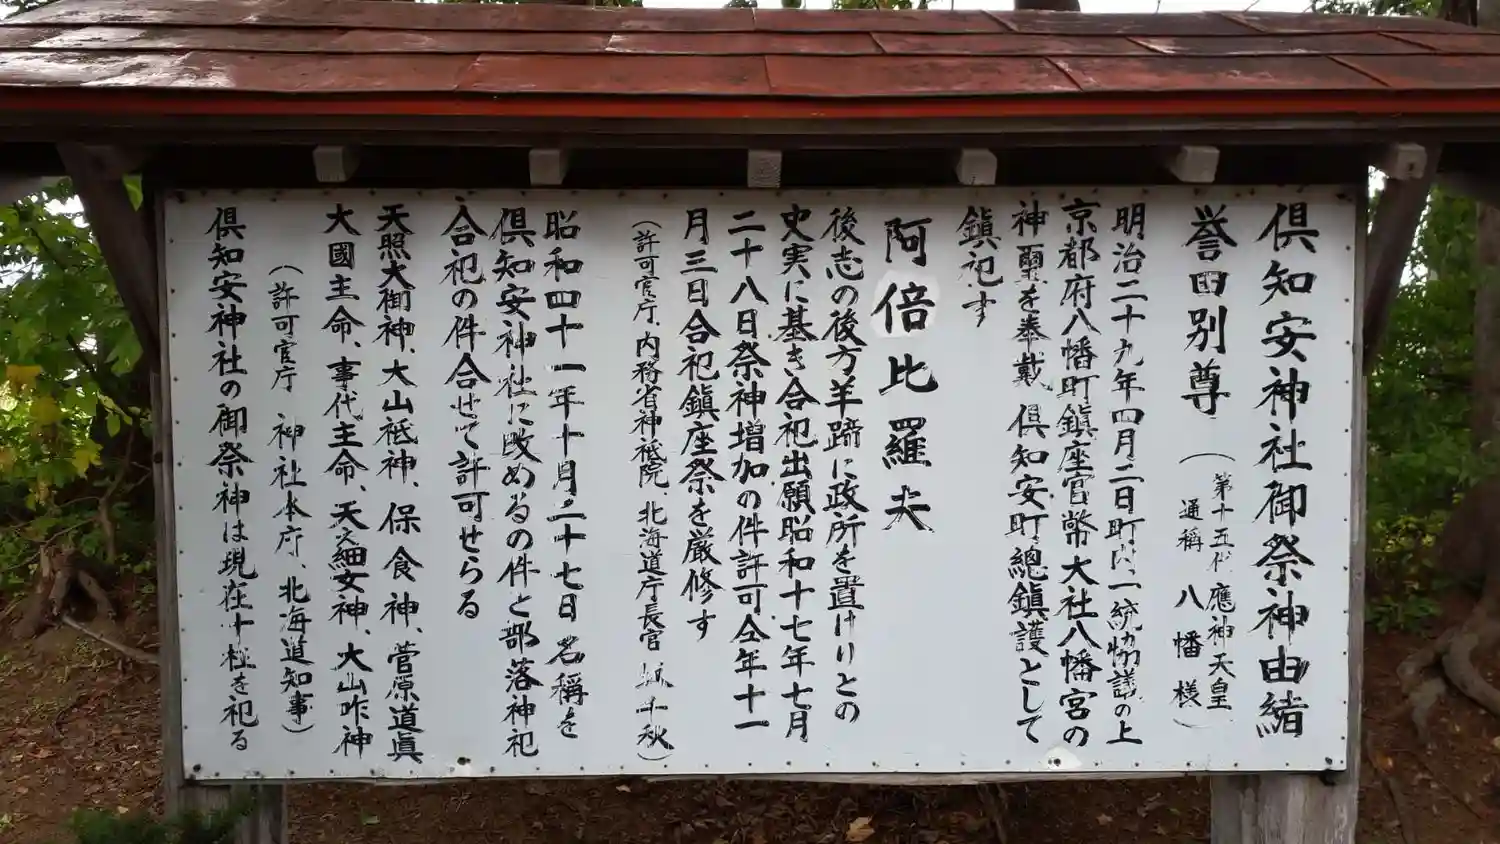 倶知安神社御祭神由緒
誉田別尊
（第十五代 應神天皇
通稱 八幡様）
明治二十九年四月二日町内一統協議の上
京都府八幡町鎮座官幣大社八幡宮の
神璽を奉戴 倶知安町總鎮護として
鎮祀す
阿倍比羅夫
後志の後方羊蹄に政所を置けりとの
史実に基き合祀出願昭和十七年七月
二十八日祭神増加の件許可仝年十一
月三日合祀鎮座祭を厳修す
（許可官庁、内務省神祇院、北海道庁長官 千秋）
昭和四十一年十月二十七日 名稱を
倶知安神社に改めるの件と部落神祀
合祀の件合せて許可せらる
天照大御神、大山祇神、保食神、菅原道眞
大國主命、事代主命、天之細女神、大山咋神
（許可官庁 神社本庁、北海道知事）
倶知安神社の御祭神は現在十柱を祀る